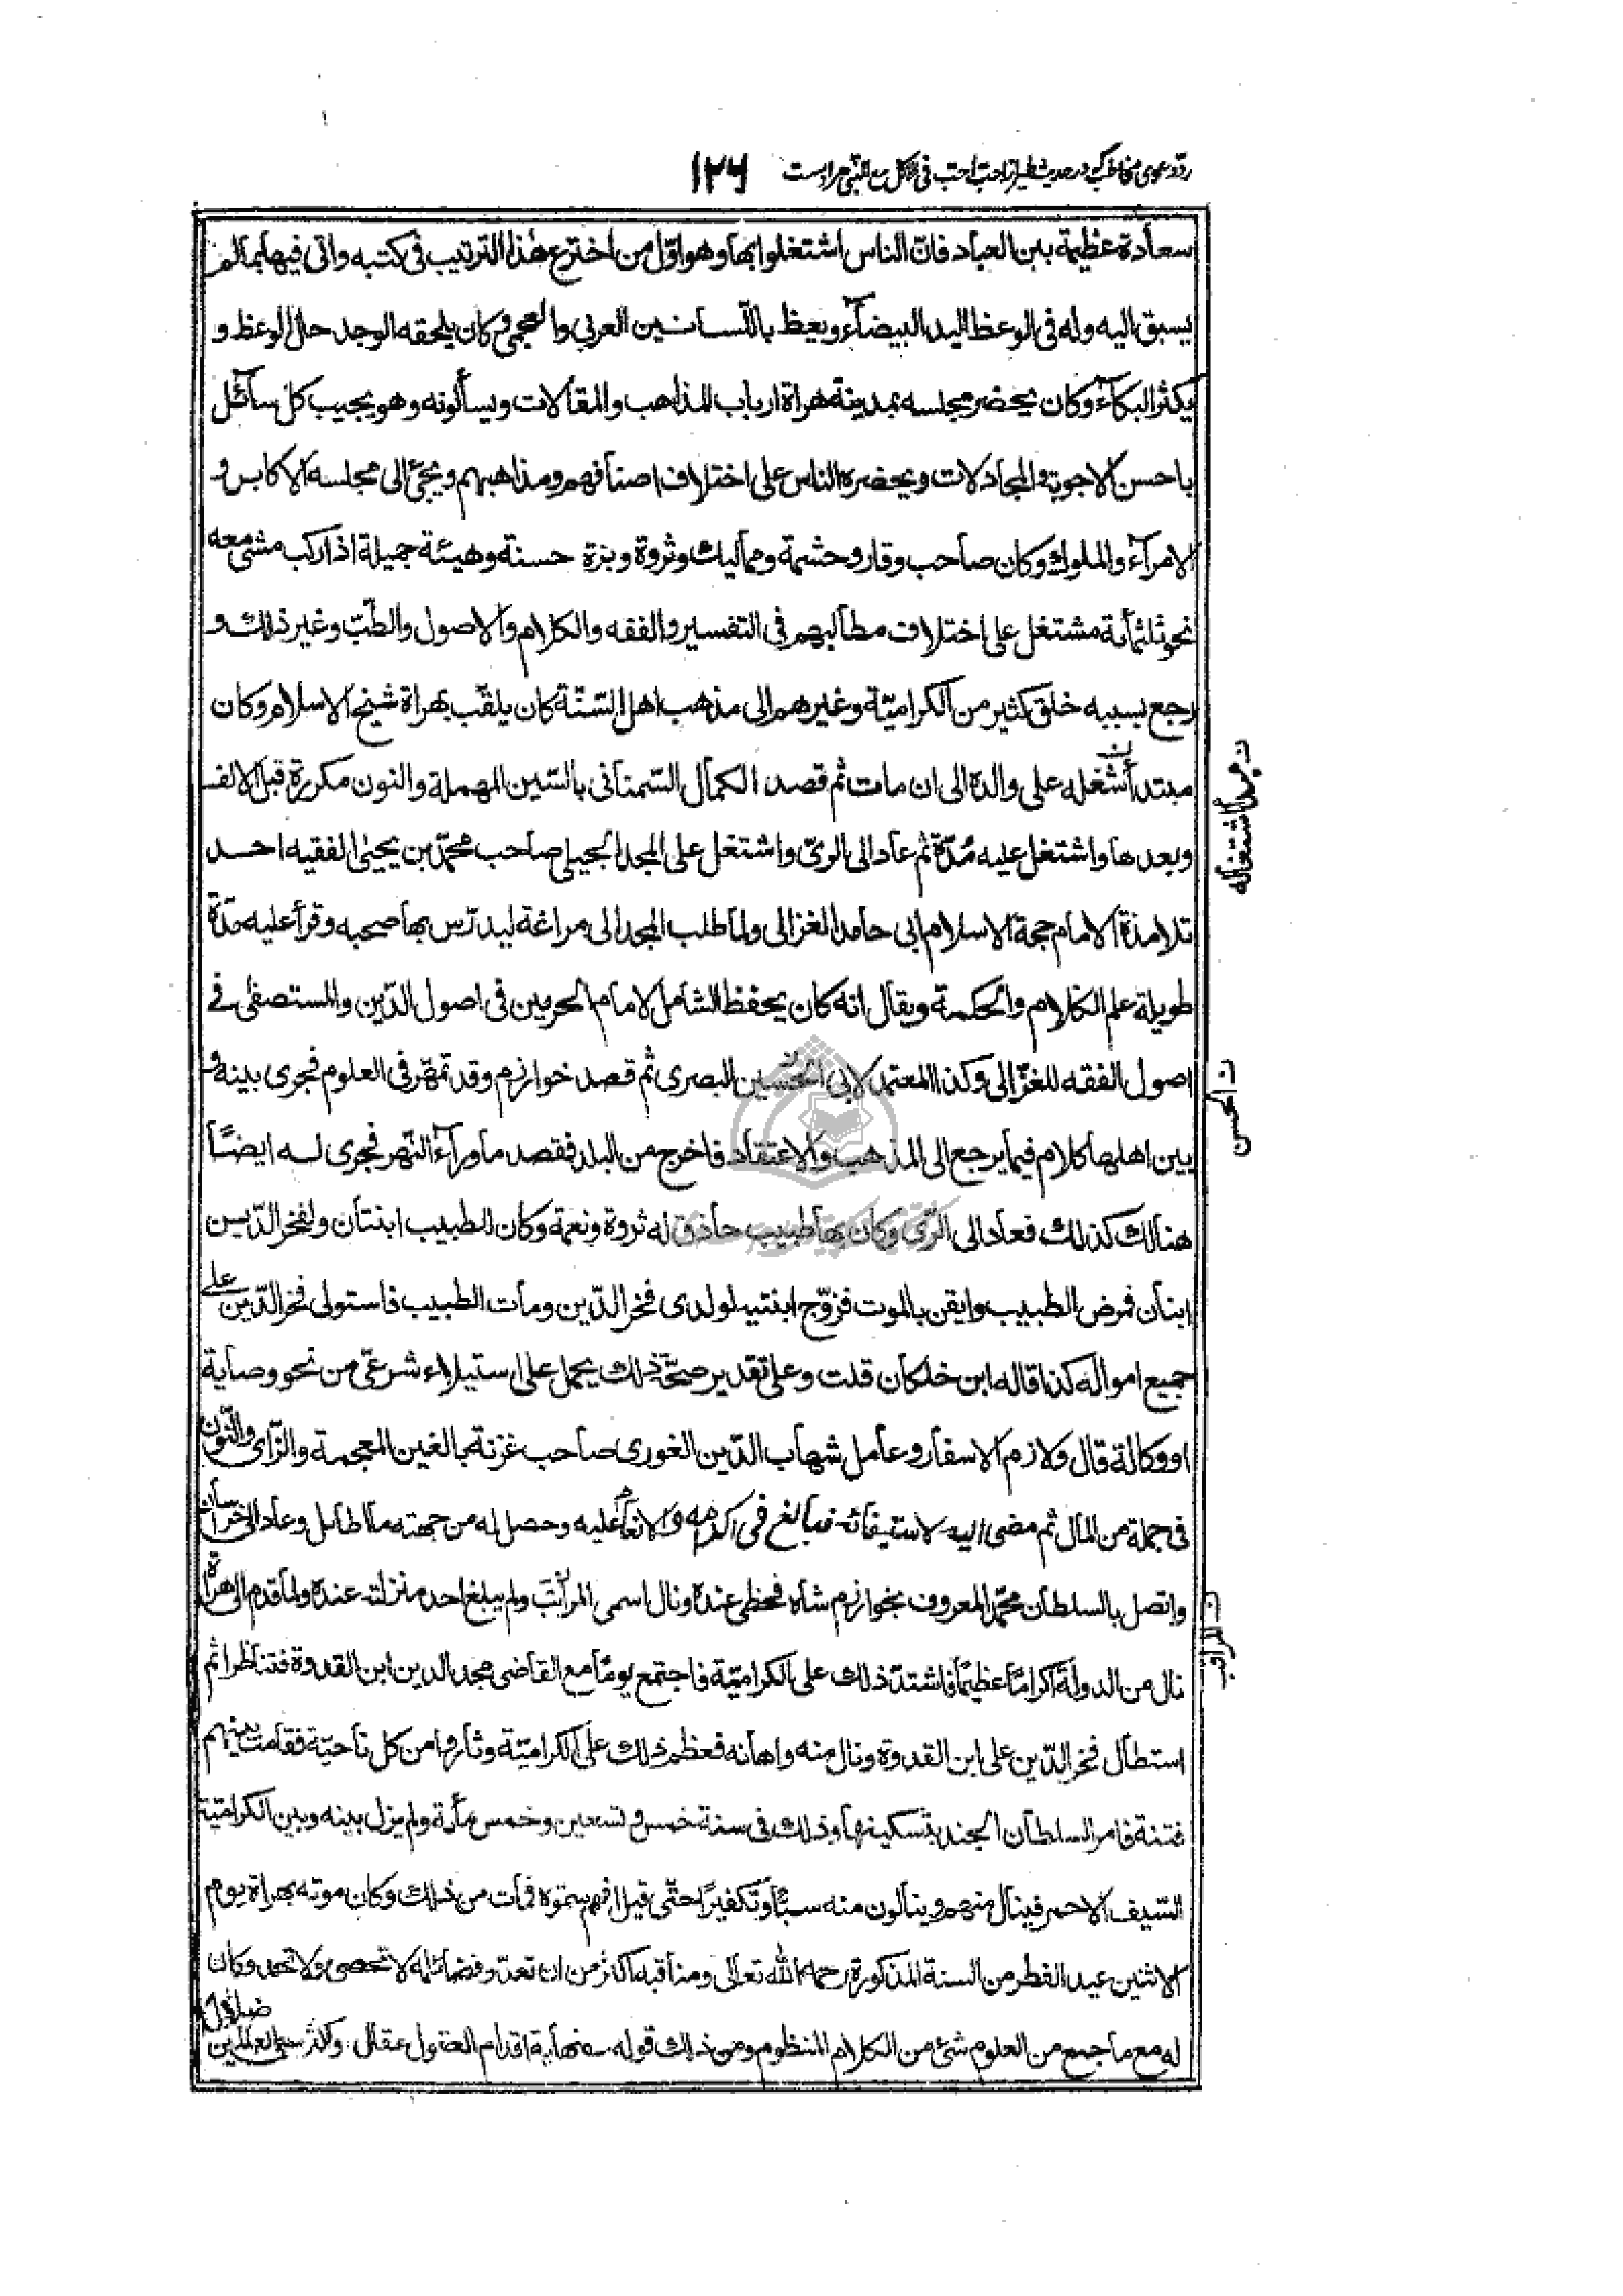 ردّ دعوی مخاطب که در حدیث طیر از احب احب فی الاکل مع النبی مراد است ۱۲۶
سعادة عظيمة بين العباد فان الناس اشتغلوا بها وهو اوّل من اخترع هذا الترتيب فى كتبه واتى فيها بما لم
يسبق اليه وله فى الوعظ اليد البيضآء ويعظ باللّسانين العربي والعجمي وكان يلحقه الوجد حال الوعظ و
يكثر البكآء وكان يحضر مجلسه بمدينة هراة ارباب المذاهب والمقالات ويسألونه وهو يجيب كل سآئل
باحسن الاجوبة والمجادلات ويحضره الناس على اختلاف اصنافهم ومذاهبهم ويجئ الى مجلسه الاكابر و
الامرآء والملوك وكان صاحب وقار وحشمة ومماليك وثروة وبزة حسنة وهيئة جميلة اذا ركب مشى معه
نحو ثلثمائة مشتغل على اختلاف مطالبهم فى التفسير والفقه والكلام والاصول والطبّ وغير ذلك و
رجع بسببه خلق كثير من الكراميّة وغيرهم الى مذهب اهل السّنّة كان يلقّب بهراة شيخ الاسلام وكان
مبتدأ شغله على والده الى ان مات ثم قصد الكمال السّمنانى بالسّين المهملة والنون مكررة قبل الالف
وبعدها واشتغل عليه مُدّة ثم عاد الى الرىّ واشتغل على المجد الجيلى صاحب محمّد بن يحيىٰ الفقيه احد
تلامذة الامام حجة الاسلام ابى حامد الغزالى ولما طلب المجد الى مراغة ليدرّس بها صحبه وقرأ عليه مدّة
طويلة علم الكلام والحكمة ويقال انه كان يحفظ الشامل لامام الحرمين فى اصول الدّين والمستصفىٰ فى
اصول الفقه للغزّالى وكذا المعتمد لابى الحسين البصرى ثم قصد خوازم وقد تمهّر فى العلوم فجرى بينه و
بين اهلها كلام فيما يرجع الى المذهب والاعتقاد فاخرج من البلد فقصد ما ورآء النّهر فجرى له ايضًا
هنالك كذلك فعاد الى الرّى وكان بها طبيب حاذق له ثروة ونعمة وكان للطبيب ابنتان ولفخر الدّين
ابنان فمرض الطبيب وايقن بالموت فزوّج ابنتيه لولدى فخر الدّين ومات الطبيب فاستولى فخر الدّين على
جميع امواله كذا قاله ابن خلكان قلت وعلى تقدير صحّة ذلك يحمل على استيلاء شرعىّ من نحو وصاية
او وكالة قال ولازم الاسفار وعامل شهاب الدّين الغورى صاحب غزنة بالغين المعجمة والزّاى والنّون
فى جملة من المال ثم مضى اليه لاستيفائه فبالغ فى اكرامه والانعام عليه وحصل له من جهته مالا طايل وعاد الى خراسان
واتصل بالسلطان محمّد المعروف بخوازم شاه فحظى عنده ونال اسمى المراتب ولم يبلغ احد منزلته عنده ولما قدم الى هراة
نال من الدولة اكرامًا عظيمًا فاشتدّ ذلك على الكراميّة فاجتمع يومًا مع القاضى مجد الدين ابن القدوة فتناظرا ثم
استطال فخر الدّين على ابن القدوة ونال منه واهانه فعظم ذلك على الكراميّة وثاروا من كل ناحيّة فقامت بينهم
فتنة فامر السلطان الجند بتسكينها وذلك فى سنة خمس وتسعين وخمس مائة ولم يزل بينه وبين الكراميّة
السّيف الاحمر فينال منهم وينالون منه سبّا وتكفيرًا حتّى قيل انهم سمّوه فمات من ذلك وكان موته بهراة يوم
الاثنين عيد الفطر من السنة المذكورة رحمه الله تعالى ومناقبه اكثر من ان تعدّ وفضائله لا تحصى ولا تحد وكان
له مع ما جمع من العلوم شئ من الكلام المنظوم ومن ذلك قوله نهاية اقدام العقول عقال واكثر سعى العالمين ضلال
ن مبدأ اشتغاله
ن الحسن
ن المراتب